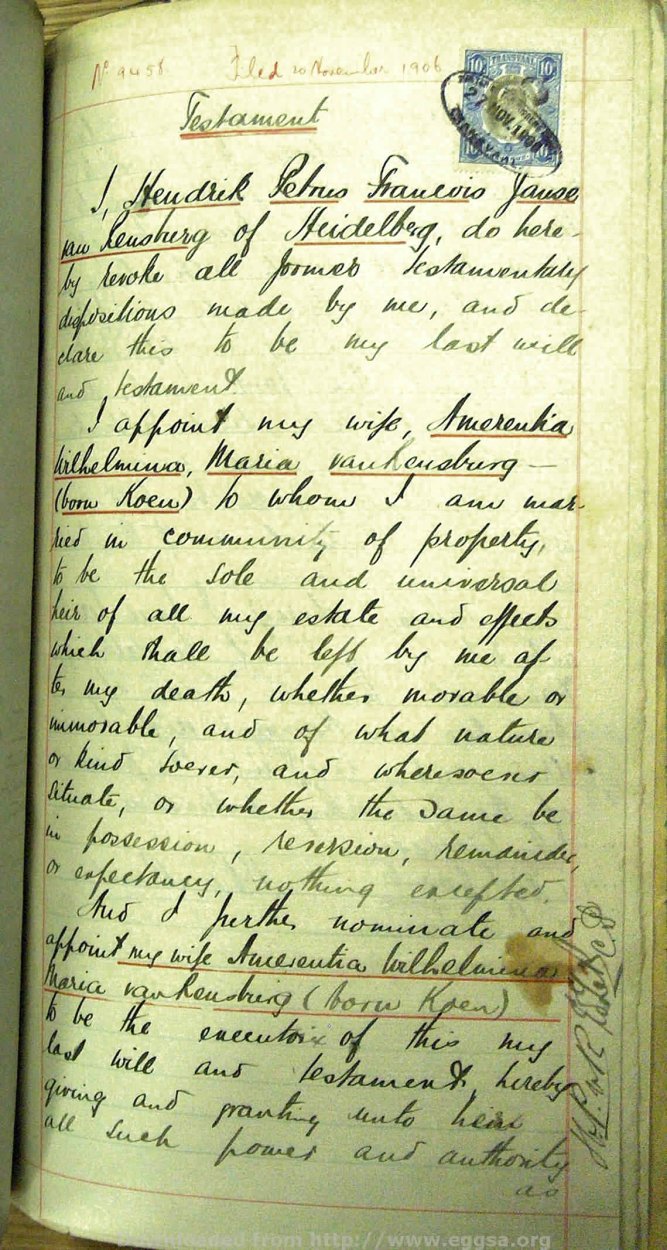 No 9458 Filed 20 November 1906
TRANSVAAL
10 10
27 NOV. 1906
10 10
Testament
I, Hendrik Petrus Francois Janse
van Rensburg of Heidelberg, do here-
by revoke all former testamentary
dispositions made by me, and de-
clare this to be my last will
and testament.
I appoint my wife, Amerentia
Wilhelmina, Maria van Rensburg —
(born Koen) to whom I am mar-
ried in community of property,
to be the sole and universal
heir of all my estate and effects
which shall be left by me af-
ter my death, whether movable or
immovable, and of what nature
or kind soever, and wheresoever
situate, or whether the same be
in possession, reversion, remainder,
or expectancy, nothing excepted.
And I further nominate and
appoint my wife Amerentia Wilhelmina
Maria van Rensburg (born Koen)
to be the executrix of this my
last will and testament, hereby
giving and granting unto her
all such power and authority
as
Downloaded from http://www.eggsa.org